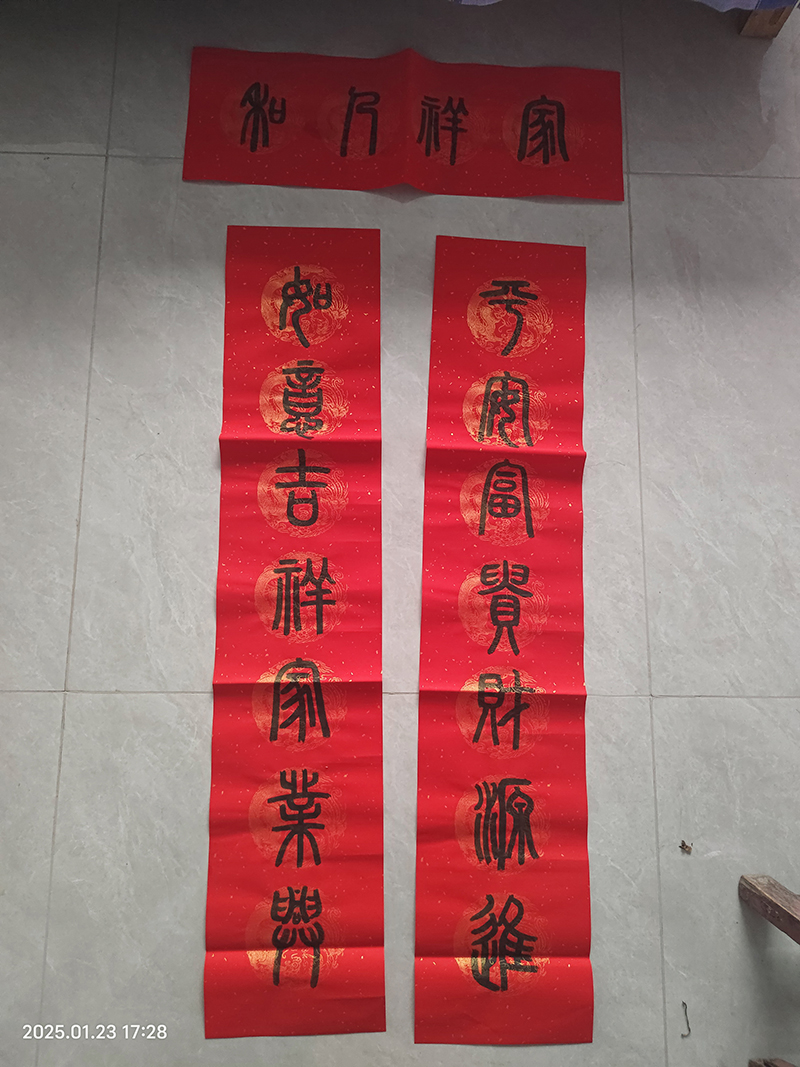 家祥人和
平安富貴財源進
如意吉祥家業興
2025.01.23 17:28